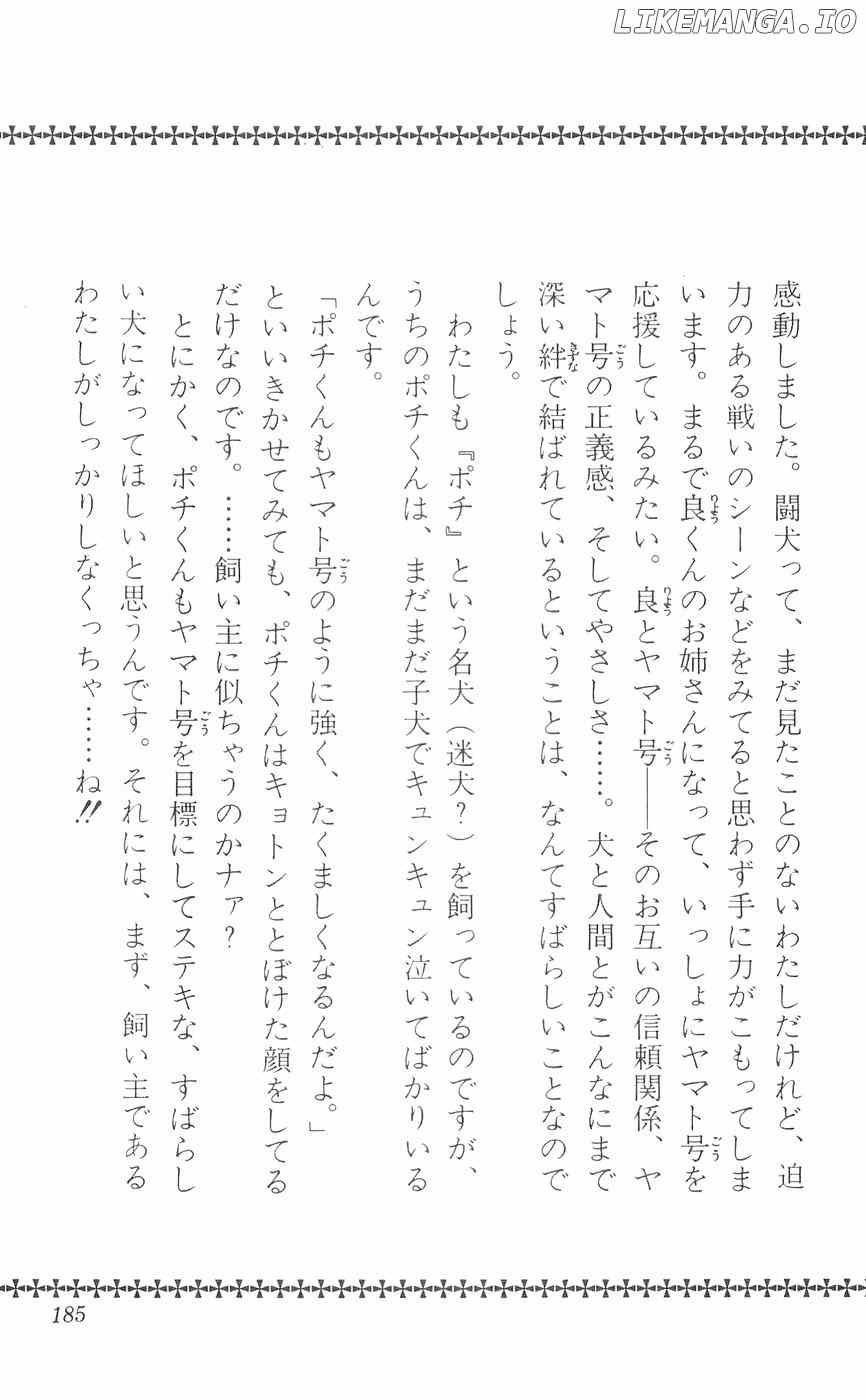 LIKEMANGA.IO
感動しました。闘犬って、まだ見たことのないわたしだけれど、迫
力のある戦いのシーンなどをみてると思わず手に力がこもってしま
います。まるで良くんのお姉さんになって、いっしょにヤマト号を
応援しているみたい。良とヤマト号——そのお互いの信頼関係、ヤ
マト号の正義感、そしてやさしさ……。犬と人間とがこんなにまで
深い絆で結ばれているということは、なんてすばらしいことなので
しょう。
わたしも『ポチ』という名犬（迷犬？）を飼っているのですが、
うちのポチくんは、まだまだ子犬でキュンキュン泣いてばかりいる
んです。
「ポチくんもヤマト号のように強く、たくましくなるんだよ。」
といいきかせてみても、ポチくんはキョトンととぼけた顔をしてる
だけなのです。……飼い主に似ちゃうのかナァ？
とにかく、ポチくんもヤマト号を目標にしてステキな、すばらし
い犬になってほしいと思うんです。それには、まず、飼い主である
わたしがしっかりしなくっちゃ……ね!!
185